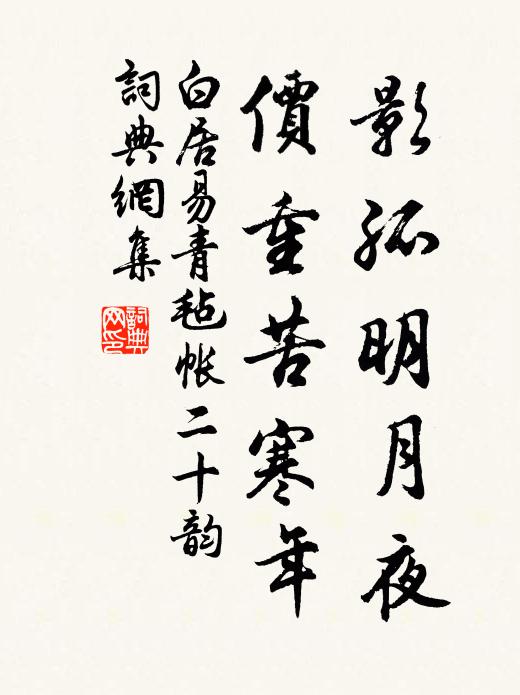 影孤明月夜
價重苦寒年
白居易青毡帐二十韵
詞典網集
詞典网印